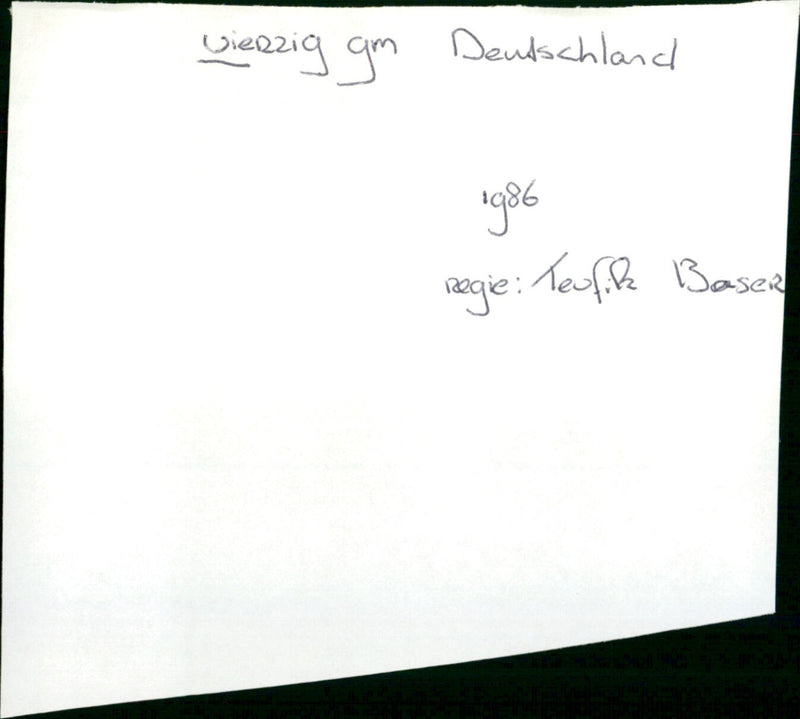 vierzig qm Deutschland
1986
regie: Tevfik Baser